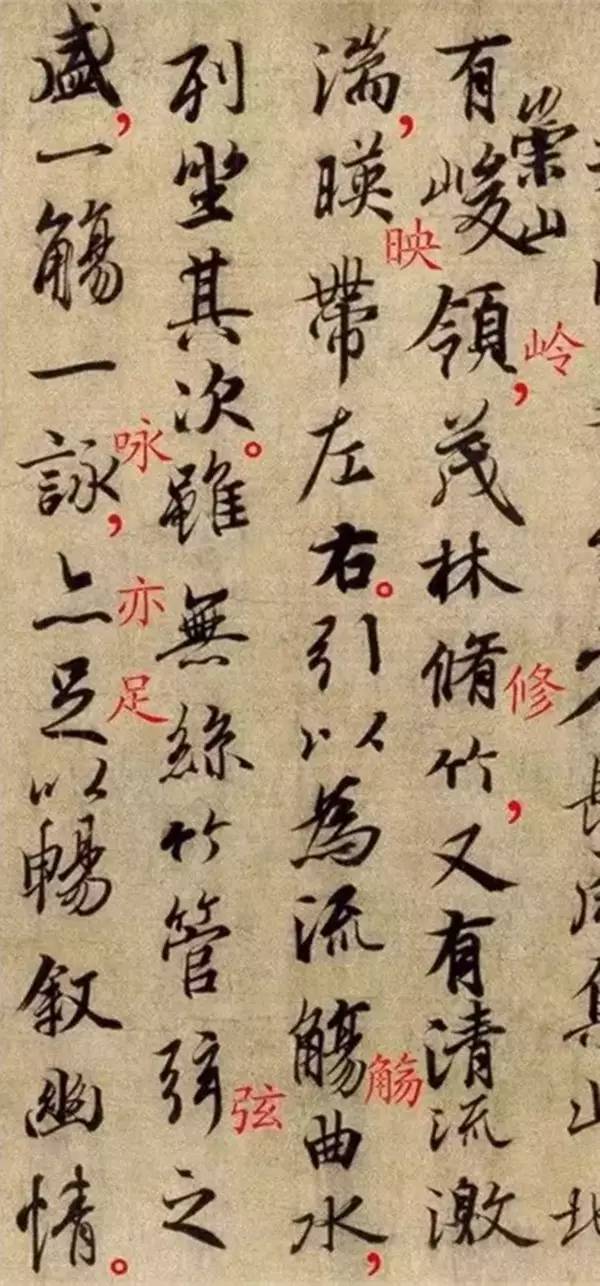 有崇山峻領，茂林脩竹，又有清流激
湍，暎帶左右。引以為流觴曲水，
列坐其次。雖無絲竹管弦之
盛，一觴一詠，亦足以暢敘幽情。
岭
修
映
觞
弦
咏
亦
足